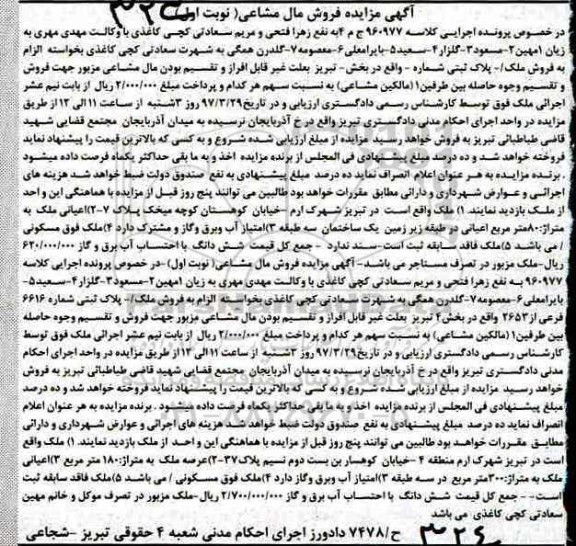 آگهی مزایده فروش مال مشاعی( نوبت اول)
در خصوص پرونده اجرایی کلاسه ۹۶۰۹۷۷ ج م ۴به نفع زهرا فتحی و مریم سعادتی کچی کاغذی با وکالت مهدی مهری به
زیان ۱مهین۲-مسعود۳-گلزار۴-سعید۵-بایرامعلی۶-معصومه۷-گلدرن همگی به شهرت سعادتی کچی کاغذی بخواسته الزام
به فروش ملک/- پلاک ثبتی شماره - واقع در بخش- تبریز بعلت غیر قابل افراز و تقسیم بودن مال مشاعی مزبور جهت فروش
و تقسیم وجوه حاصله بین طرفین۱ (مالکین مشاعی) به نسبت سهم هر کدام و پرداخت مبلغ ۲/۰۰۰/۰۰۰ ریال از بابت نیم عشر
اجرائی ملک فوق توسط کارشناس رسمی دادگستری ارزیابی و در تاریخ۹۷/۳/۲۹ روز ۳شنبه از ساعت ۱۱ الی ۱۲ از طریق
مزایده در واحد اجرای احکام مدنی دادگستری تبریز واقع در خ آذربایجان نرسیده به میدان آذربایجان مجتمع قضایی شهید
قاضی طباطبائی تبریز به فروش خواهد رسید مزایده از مبلغ ارزیابی شده شروع و به کسی که بالاترین قیمت را پیشنهاد نماید
فروخته خواهد شد و ده درصد مبلغ پیشنهادی فی المجلس از برنده مزایده اخذ و به ما بقی حداکثر یکماه فرصت داده میشود
. برنده مزایده به هر عنوان اعلام انصراف نماید ده درصد مبلغ پیشنهادی به نفع صندوق دولت ضبط خواهد شد هزینه های
اجرائی و عوارض شهرداری و دارائی مطابق مقررات خواهد بود طالبین می توانند پنج روز قبل از مزایده با هماهنگی این و احد
از ملک بازدید نمایند. ۱) ملک واقع است در تبریز شهرک ارم -خیابان کوهستان کوچه میخک پلاک ۷-۲)اعیانی ملک به
متراژ:۸۰متر مربع اعیانی در طبقه زیر زمین یک ساختمان سه طبقه ۳)امتیاز آب وبرق وگاز و مشترک دارد ۴)ملک فوق مسکونی
/ می باشد ۵)ملک فاقد سابقه ثبت است-سند ندارد - جمع کل قیمت شش دانگ با احتساب آب برق و گاز ۶۲۰/۰۰۰/۰۰۰
ریال-ملک مزبور در تصرف مستاجر می باشد- آگهی مزایده فروش مال مشاعی( نوبت اول) -در خصوص پرونده اجرایی کلاسه
۹۶۰۹۷۷ به نفع زهرا فتحی و مریم سعادتی کچی کاغذی با وکالت مهدی مهری به زیان ۱مهین۲-مسعود۳-گلزار۴-سعید۵-
بایرامعلی۶-معصومه۷-گلدرن همگی به شهرت سعادتی کچی کاغذی بخواسته الزام به فروش ملک/- پلاک ثبتی شماره ۶۶۱۶
فرعی از ۲۶۵۳ واقع در بخش۴ تبریز بعلت غیر قابل افراز و تقسیم بودن مال مشاعی مزبور جهت فروش و تقسیم وجوه حاصله
بین طرفین۱ (مالکین مشاعی) به نسبت سهم هر کدام و پرداخت مبلغ ۲/۰۰۰/۰۰۰ ریال از بابت نیم عشر اجرائی ملک فوق توسط
کارشناس رسمی دادگستری ارزیابی و در تاریخ۹۷/۳/۲۹ روز ۳شنبه از ساعت ۱۱ الی ۱۲ از طریق مزایده در واحد اجرای احکام
مدنی دادگستری تبریز واقع در خ آذربایجان نرسیده به میدان آذربایجان مجتمع قضایی شهید قاضی طباطبائی تبریز به فروش
خواهد رسید مزایده از مبلغ ارزیابی شده شروع و به کسی که بالاترین قیمت را پیشنهاد نماید فروخته خواهد شد و ده درصد
مبلغ پیشنهادی فی المجلس از برنده مزایده اخذ و به ما بقی حداکثر یکماه فرصت داده میشود . برنده مزایده به هر عنوان اعلام
انصراف نماید ده درصد مبلغ پیشنهادی به نفع صندوق دولت ضبط خواهد شد هزینه های اجرائی و عوارض شهرداری و دارائی
مطابق مقررات خواهد بود طالبین می توانند پنج روز قبل از مزایده با هماهنگی این و احد از ملک بازدید نمایند. ۱) ملک واقع
است در تبریز شهرک ارم منطقه ۴ -خیابان کوهسار بن بست دوم نسیم پلاک۳۷-۲)عرصه ملک به متراژ:۱۸۰ متر مربع ۳)اعیانی
ملک به متراژ:۳۰۰متر مربع در سه طبقه ۳)امتیاز آب وبرق وگاز دارد ۴)ملک فوق مسکونی / می باشد ۵)ملک فاقد سابقه ثبت
است- - جمع کل قیمت شش دانگ با احتساب آب برق و گاز ۲/۷۰۰/۰۰۰/۰۰۰ ریال-ملک مزبور در تصرف موکل و خانم مهین
سعادتی کچی کاغذی می باشد
ح/۷۴۷۸ دادورز اجرای احکام مدنی شعبه ۴ حقوقی تبریز -شجاعی